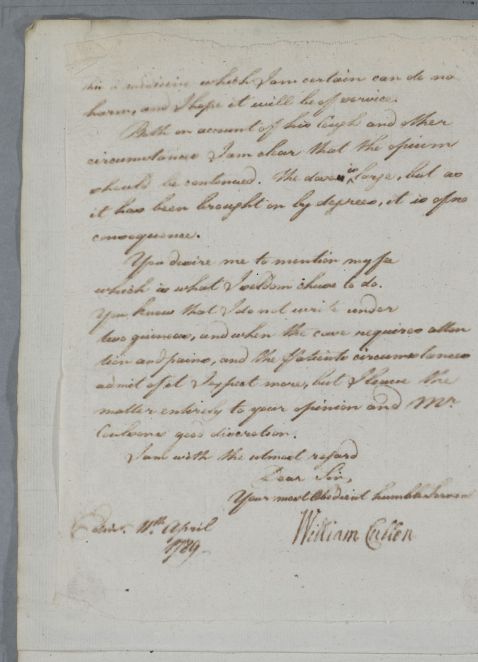 his a medicine which I am certain can do no
harm, and I hope it will be of service.
Both on account of his Cough and other
circumstances I am clear that the opium
should be continued. The dose is large, but as
it has been brought on by degrees, it is of no
consequence.
You desire me to mention my fee
which is what I seldom chuse to do.
You know that I do not write under
two guineas, and when the case requires atten
tion and pains, and the Patients circumstances
admit of it I expect more, but I leave the
matter entirely to your opinion and Mr.
good discretion.
I am with the utmost regard
Dear Sir,
Your most Obedient humble Servant
Edinr. 11th. April
William Cullen
1789